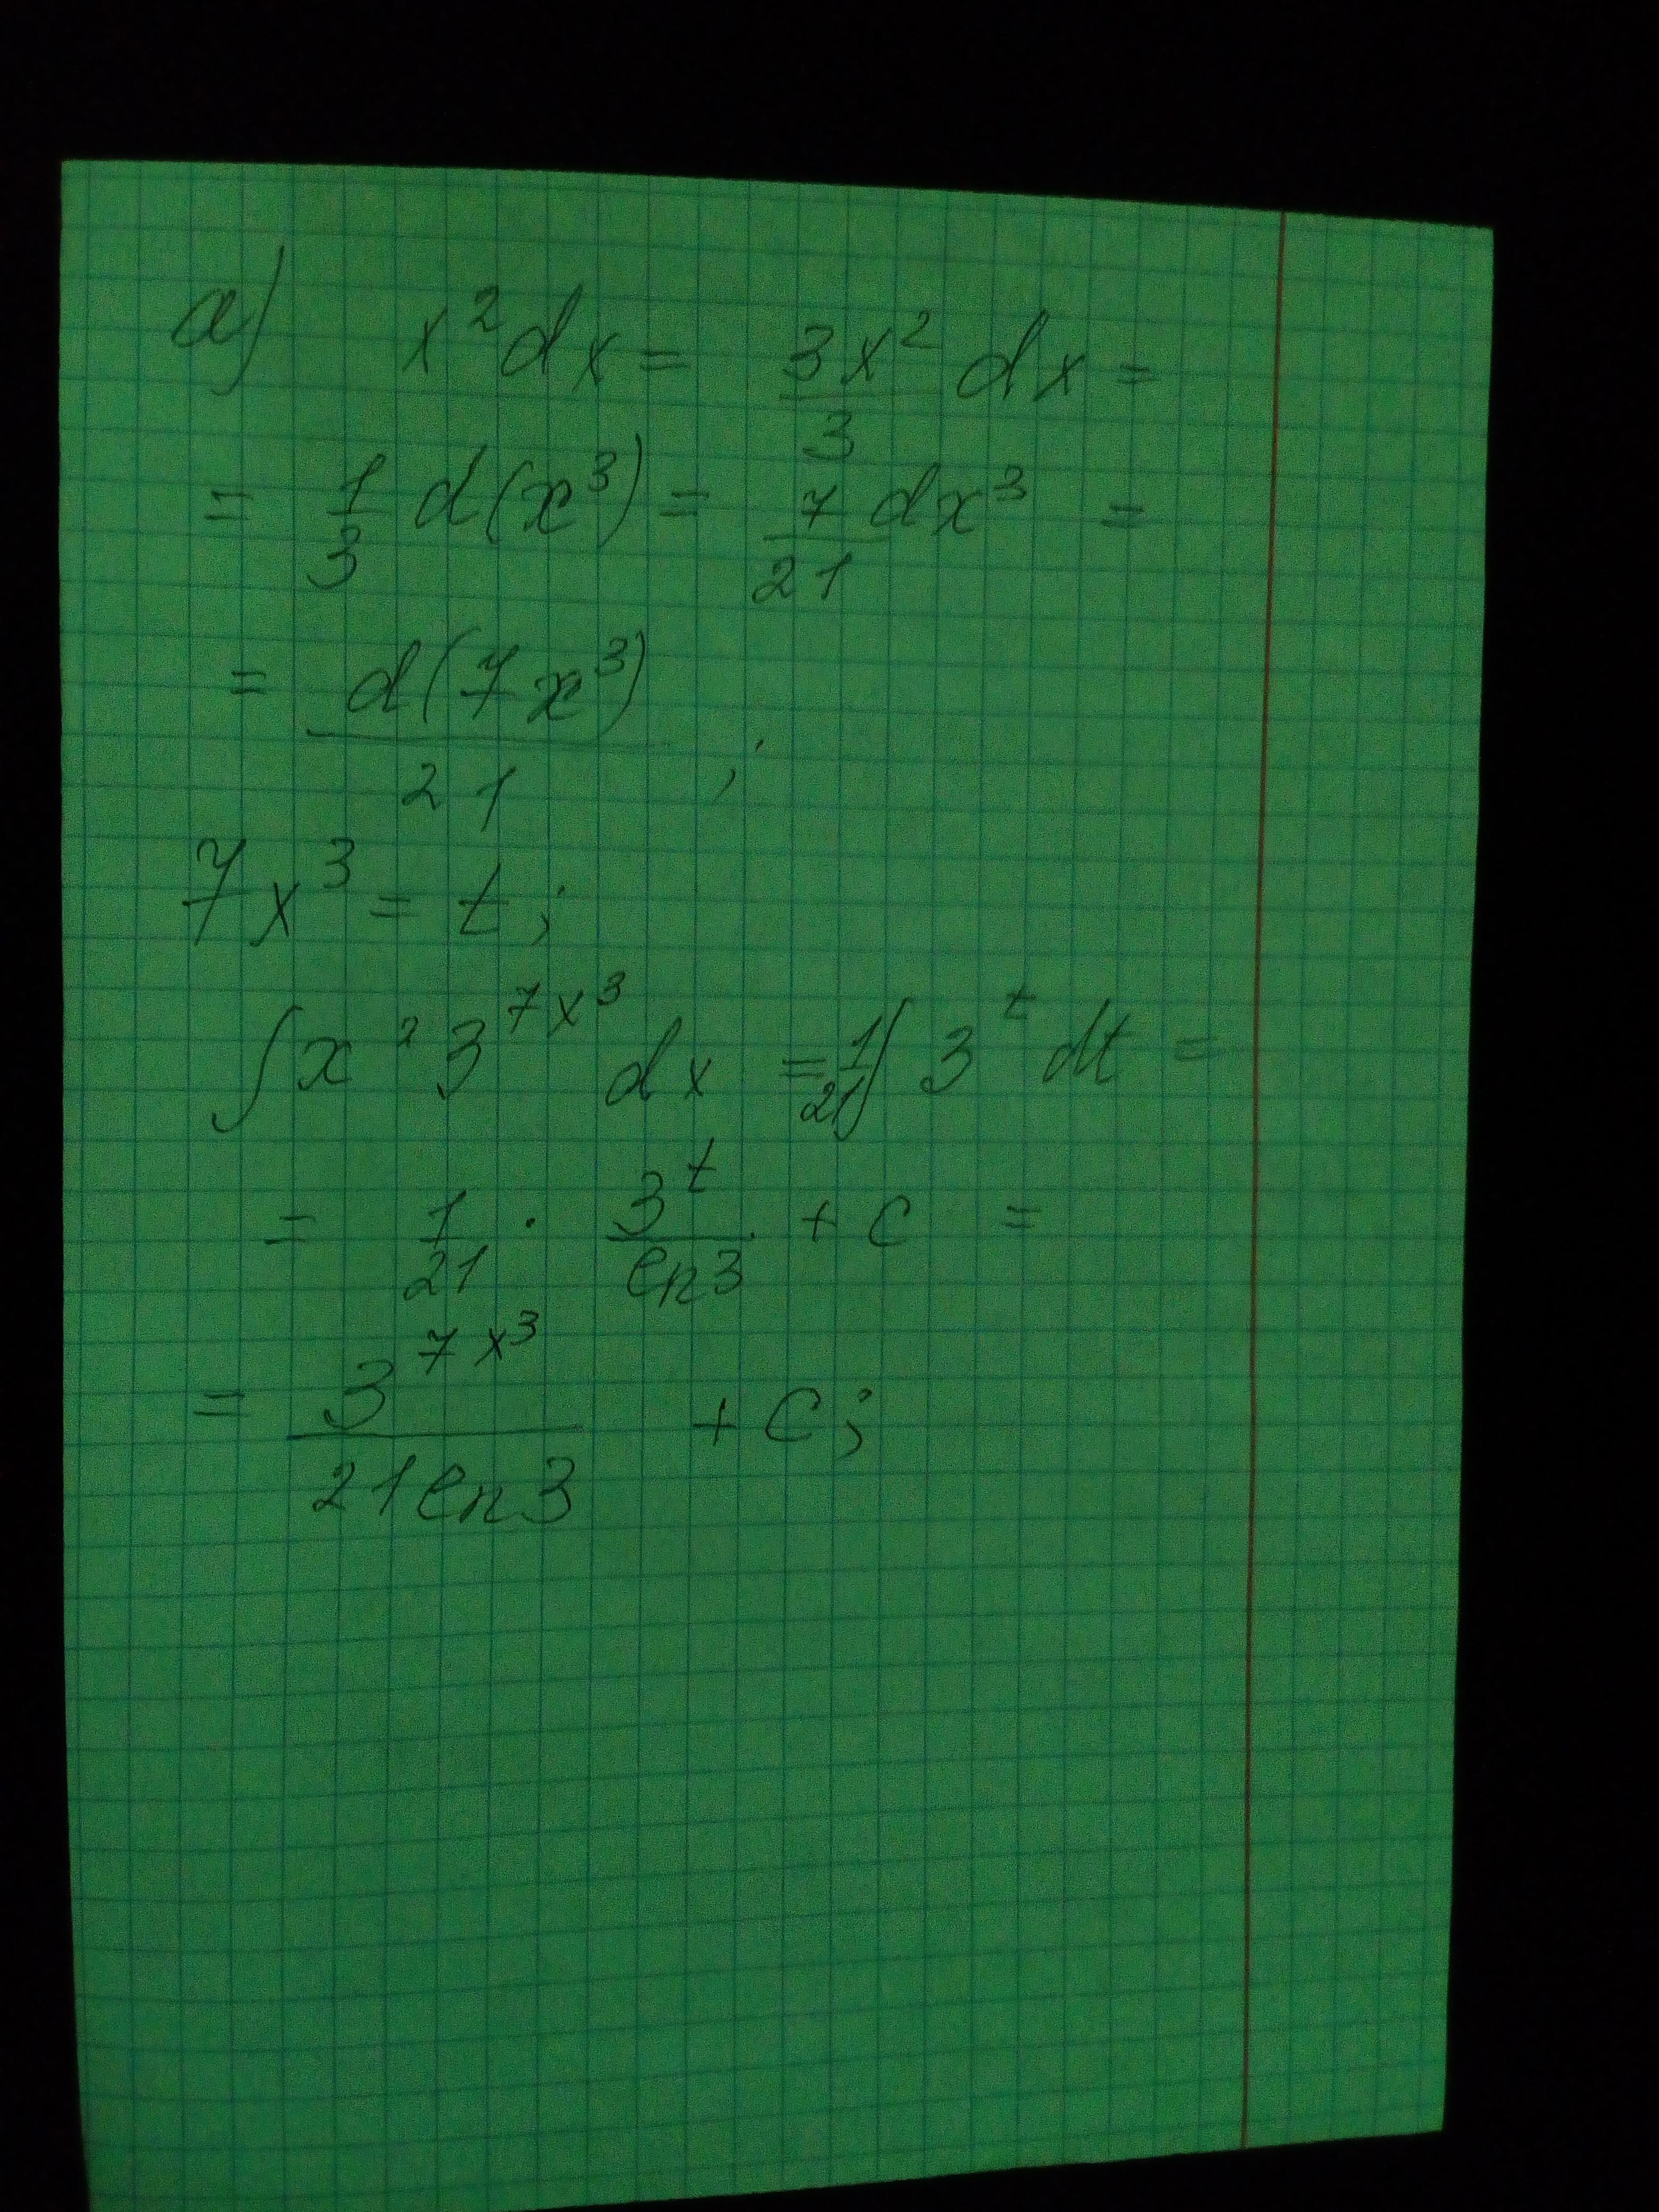 a) x² dx = 3x²/3 dx =
= 1/3 d(x³) = 7/21 dx³ =
= d(7x³)/21 ;
7x³ = t;
∫ x² 3^(7x³) dx = 1/21 ∫ 3^t dt =
= 1/21 · 3^t/ln3 + C =
= 3^(7x³)/(21 ln3) + C;